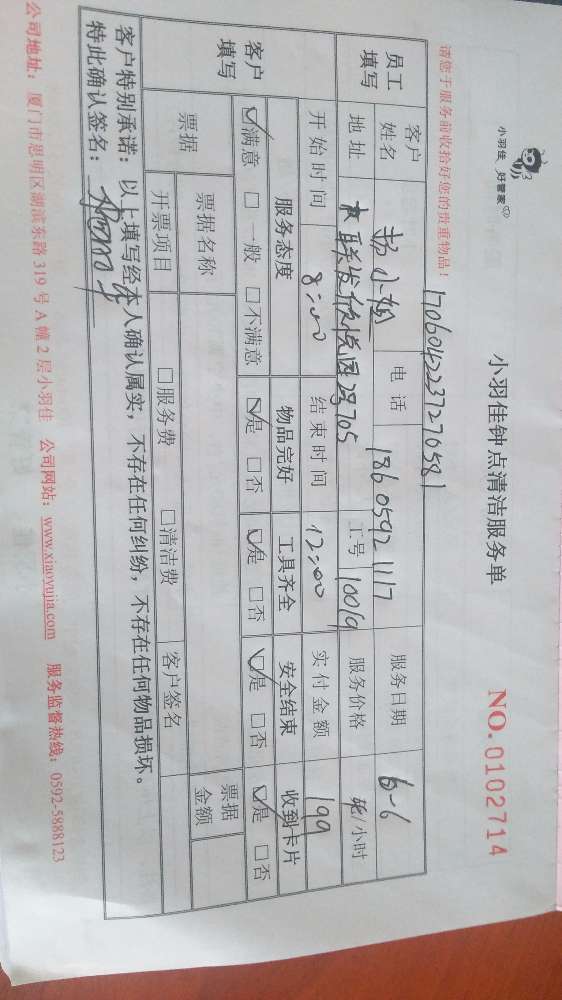 小羽佳 好管家
小羽佳钟点清洁服务单
NO.0102714
请您于服务前收拾好您的贵重物品！
170604223727058
员工填写 客户姓名 杨小姐 电话 18605921117 服务日期 6-6
地址 联发欣悦园 705 工号 10019 服务价格 /小时
开始时间 8:00 结束时间 12:00 实付金额 199
客户填写 服务态度 物品完好 工具齐全 安全结束 收到卡片
☑满意 □一般 □不满意 ☑是 □否 ☑是 □否 ☑是 □否 ☑是 □否
票据 票据名称 票据金额
开票项目 □服务费 □清洁费 客户签名
客户特别承诺：以上填写经本人确认属实，不存在任何纠纷，不存在任何物品损坏。
特此确认签名：
公司地址：厦门市思明区湖滨东路 319 号 A 幢 2 层小羽佳 公司网站：www.xiaoyujia.com 服务监督热线：0592-5888123